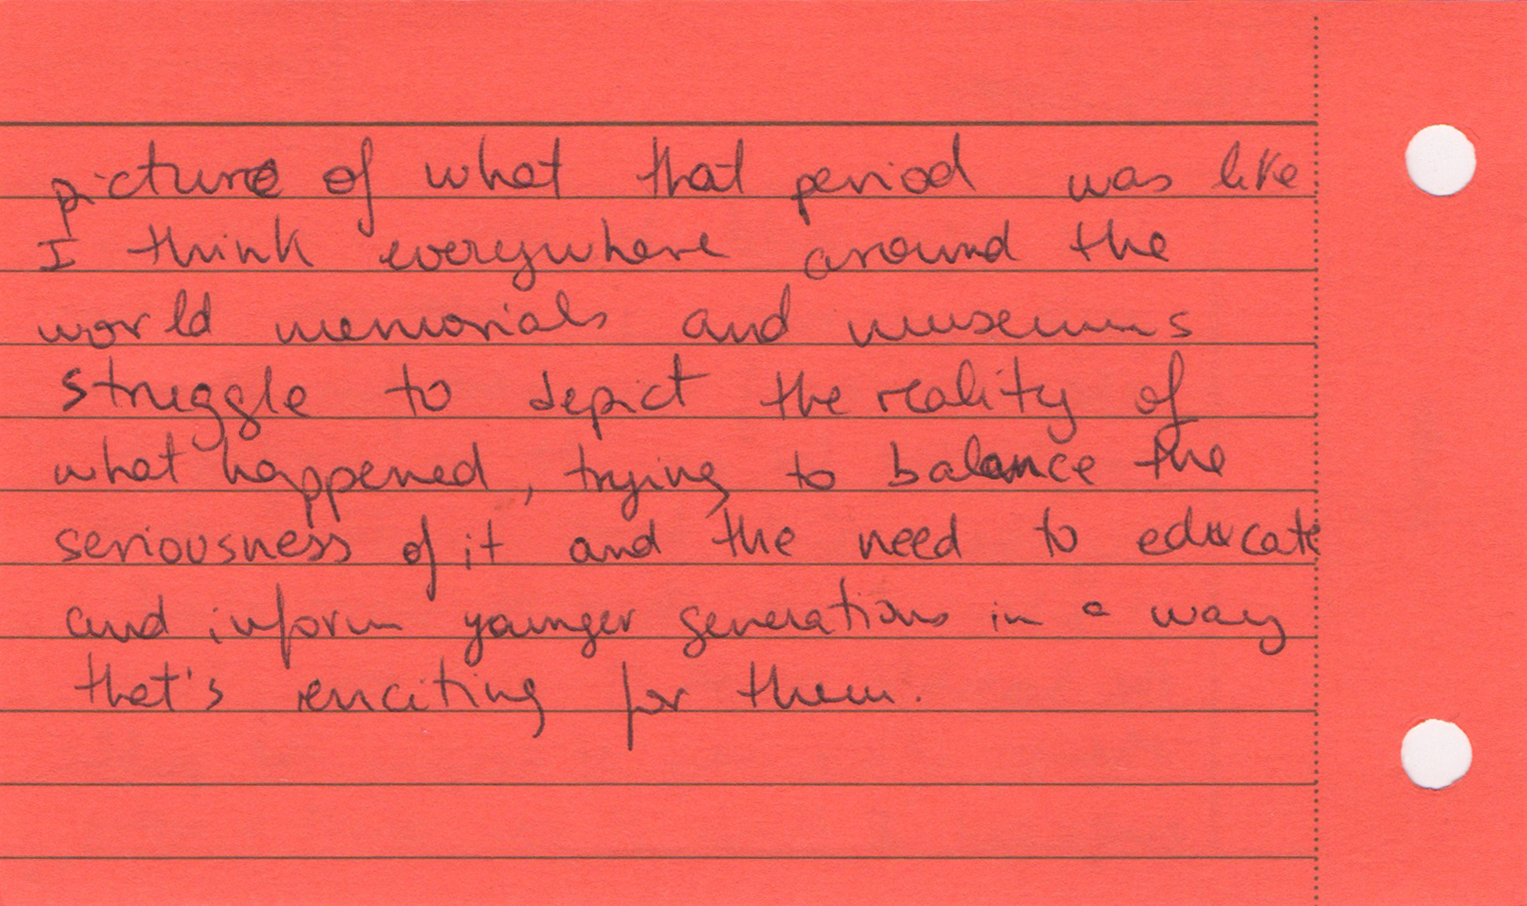 picture of what that period was like
I think everywhere around the
world memorials and museums
struggle to depict the reality of
what happened, trying to balance the
seriousness of it and the need to educate
and inform younger generations in a way
that's enciting for them.